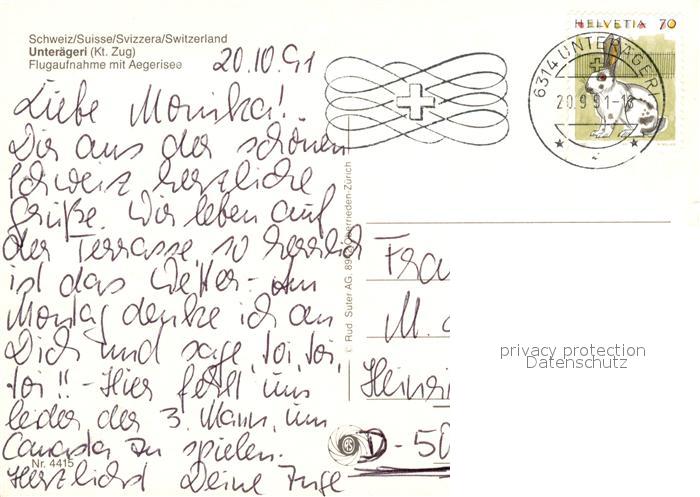 Schweiz/Suisse/Svizzera/Switzerland
Unterägeri (Kt. Zug)
Flugaufnahme mit Aegerisee
20.10.91
HELVETIA 70
6314 UNTERÄGERI
20.9.91-18
Liebe Monika!
Dir aus der schönen
Schweiz herzliche
Grüße. Wir leben auf
der Terrasse, so herrlich
ist das Wetter - Am
Montag denke ich an
Dich und sage, toi, toi,
toi!! - Hier fehlt uns
leider der 3. Mann, um
Canasta zu spielen.
Herzlichst Deine Inge
Nr. 4415
© Rud. Suter AG, Oberrieden-Zürich
RS
Fra
M.
Heinri
D-50
privacy protection
Datenschutz